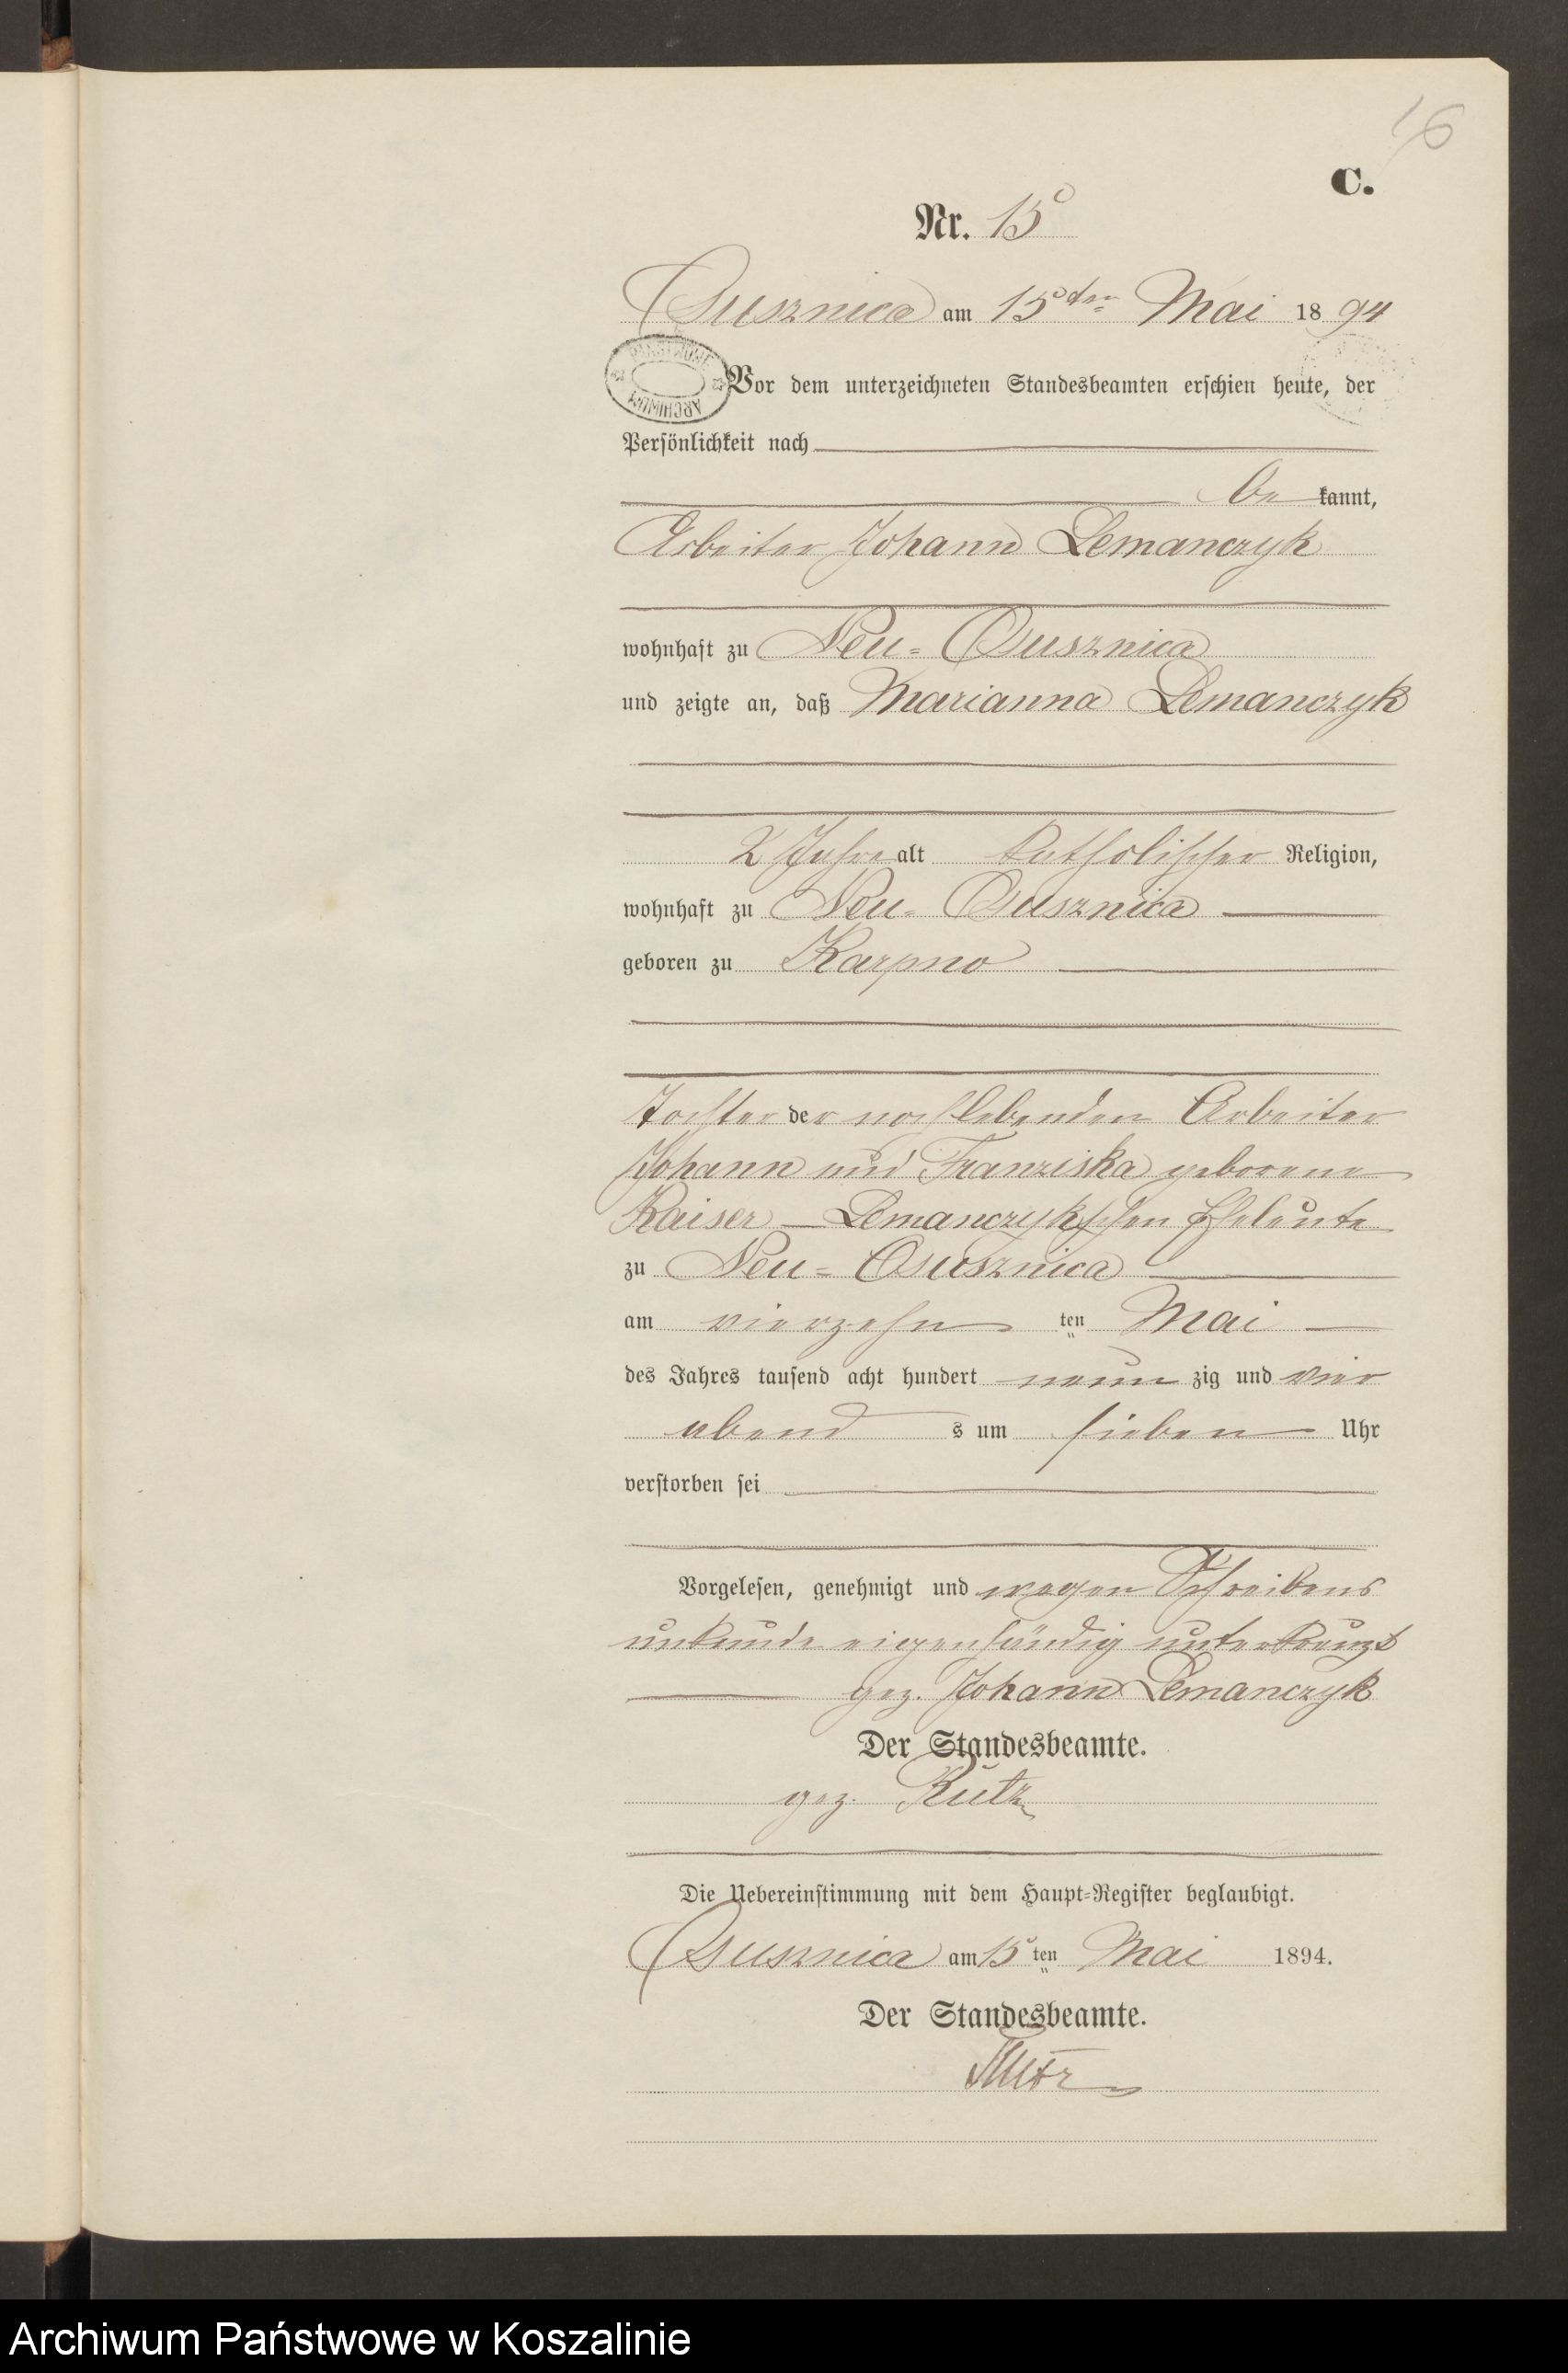 16
C.
Nr. 15
Osusznica am 15ten Mai 1894
PAŃSTWOWE ARCHIWUM
Vor dem unterzeichneten Standesbeamten erschien heute, der
Persönlichkeit nach
be kannt,
Arbeiter Johann Lemanczyk
wohnhaft zu Neu-Osusznica
und zeigte an, daß Marianna Lemanczyk
2 Jahre alt katholischer Religion,
wohnhaft zu Neu-Osusznica
geboren zu Karpno
Tochter der noch lebenden Arbeiter
Johann und Franziska geborene
Kaiser-Lemanczyk'schen Eheleute
zu Neu-Osusznica
am vierzehn ten Mai
des Jahres tausend acht hundert neun zig und vier
abend s um sieben Uhr
verstorben sei
Vorgelesen, genehmigt und wegen Schreibens
unkunde eigenhändig unterkreuzt
gez. Johann Lemanczyk
Der Standesbeamte.
gez. Rutz
Die Uebereinstimmung mit dem Haupt-Register beglaubigt.
Osusznica am 15 ten Mai 1894.
Der Standesbeamte.
Rutz
Archiwum Państwowe w Koszalinie